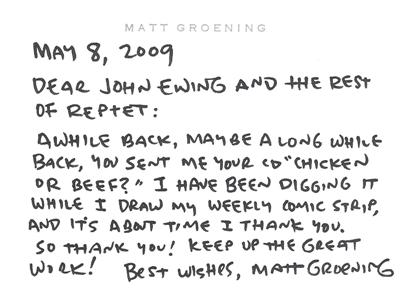 MATT GROENING
MAY 8, 2009
DEAR JOHN EWING AND THE REST
OF REPTET:
AWHILE BACK, MAYBE A LONG WHILE
BACK, YOU SENT ME YOUR CD "CHICKEN
OR BEEF?" I HAVE BEEN DIGGING IT
WHILE I DRAW MY WEEKLY COMIC STRIP,
AND IT'S ABOUT TIME I THANK YOU.
SO THANK YOU! KEEP UP THE GREAT
WORK! BEST WISHES, MATT GROENING